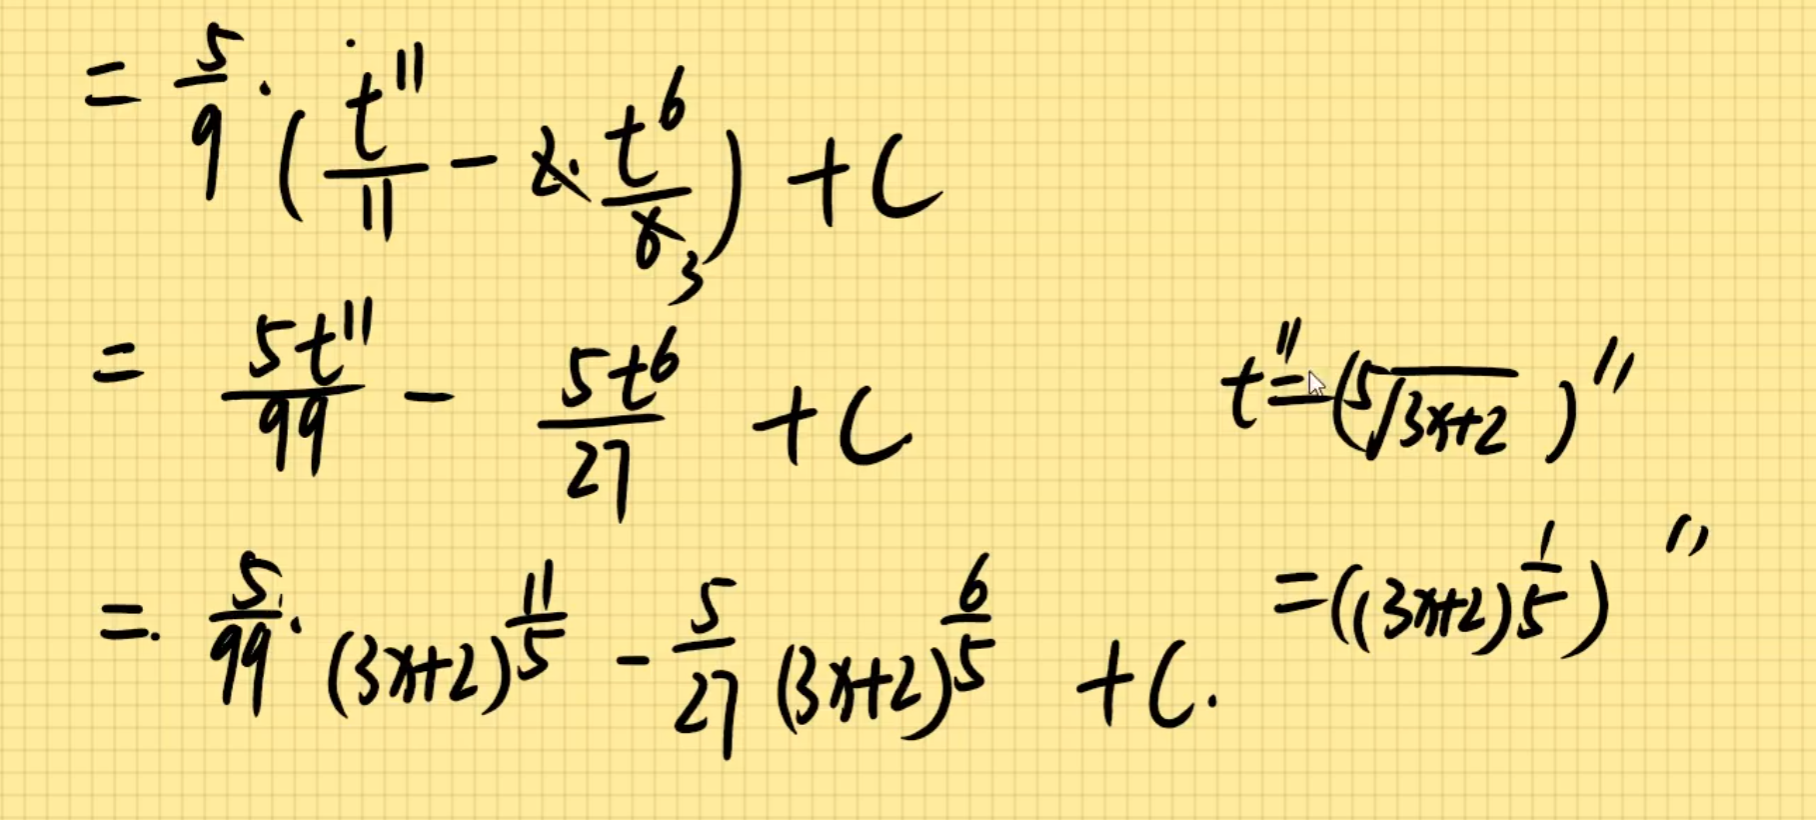 = 5/9 · (t^11/11 - 2· t^6/6 3) + C
= 5t^11/99 - 5t^6/27 + C
t^11 = (⁵√(3x+2))^11
= 5/99 · (3x+2)^(11/5) - 5/27 (3x+2)^(6/5) + C.
= ((3x+2)^(1/5))^11